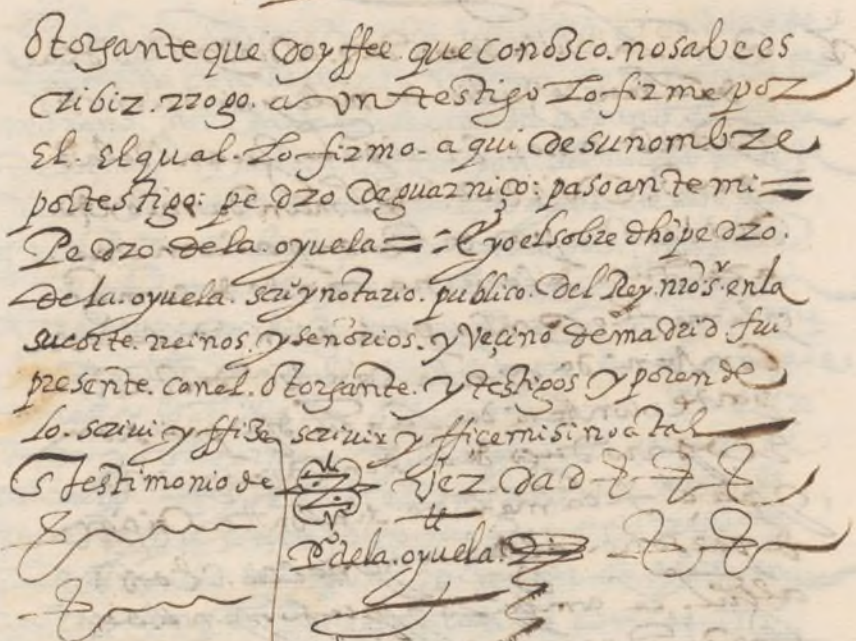 otorgante que doy ffee que conosco. no sabe es
cribir. rrogo. a un testigo lo firme por
el. el qual. lo firmo. a qui de su nombre
por testigo: pedro de guarniço: paso ante mi =
Pedro de la. oyuela = : E yo el sobre dho pedro.
de la. oyuela. scriº y notario. publico. del Rey. nrõ sr. en la
su corte. rreinos. y señorios. y veçino de madrid fui
presente. con el. otorgante. y testigos y por en de
lo. scriui y ffize scriuir y ffice mi sino a tal
En testimonio de verdad
Pº de la. oyuela.